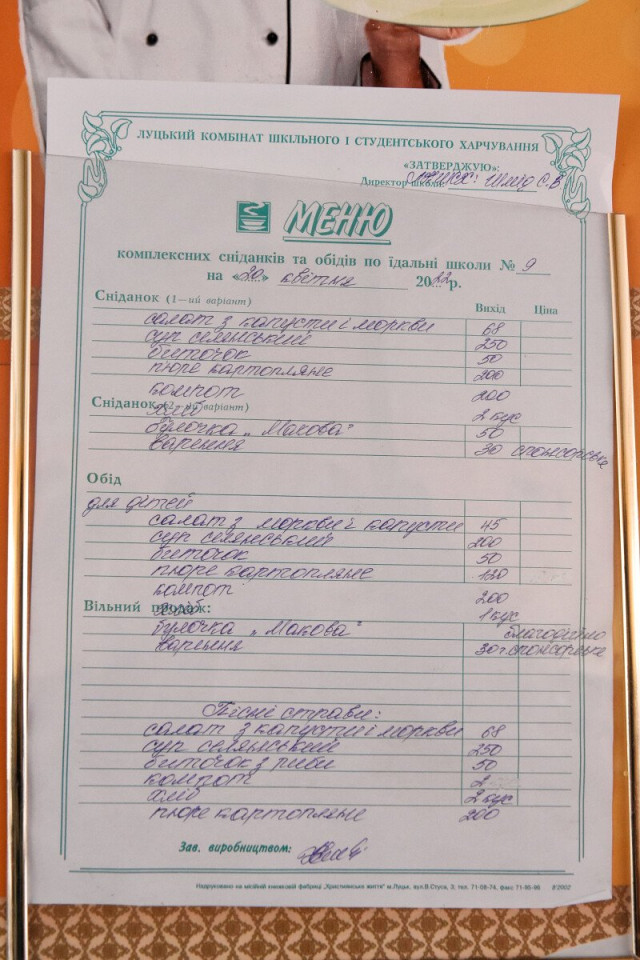 ЛУЦЬКИЙ КОМБІНАТ ШКІЛЬНОГО І СТУДЕНТСЬКОГО ХАРЧУВАННЯ
«ЗАТВЕРДЖУЮ»:
Директор школи:
МЕНЮ
комплексних сніданків та обідів по їдальні школи № 9
на «20» квітня 2022р.
Сніданок (1—ий варіант) Вихід Ціна
салат з капусти і моркви 68
суп селянський 250
биточок 50
пюре картопляне 200
компот 200
Сніданок (2—ий варіант)
хліб 2 кус
булочка „Макова" 50
варення 30 спонсорське
Обід
для дітей
салат з моркви і капусти 45
суп селянський 200
биточок 50
пюре картопляне 120
компот 200
Вільний продаж:
хліб 1 кус
булочка „Макова" благодійно
варення 30г. спонсорське
Пісні страви:
салат з капусти і моркви 68
суп селянський 250
биточок з риби 50
компот
хліб 2 кус
пюре картопляне 200
Зав. виробництвом:
Надруковано на місійній книжковій фабриці „Християнське життя" м.Луцьк, вул.В.Стуса, 3, тел. 71-08-74, факс 71-95-96 ®2002